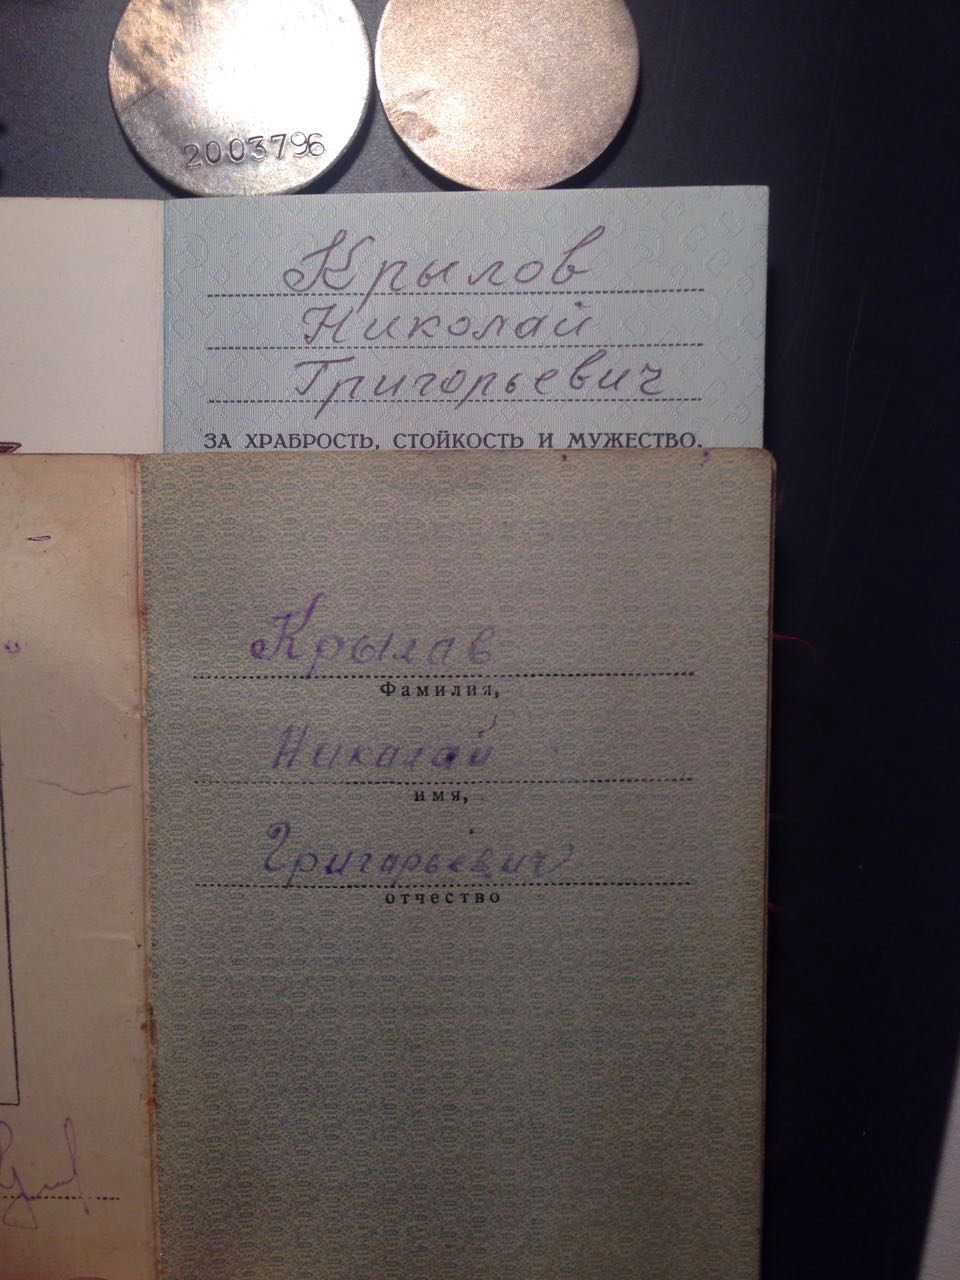 2003796
Крылов
Николай
Григорьевич
ЗА ХРАБРОСТЬ, СТОЙКОСТЬ И МУЖЕСТВО,
Крылав
Фамилия,
Никалай
имя,
Григарьевич
отчество